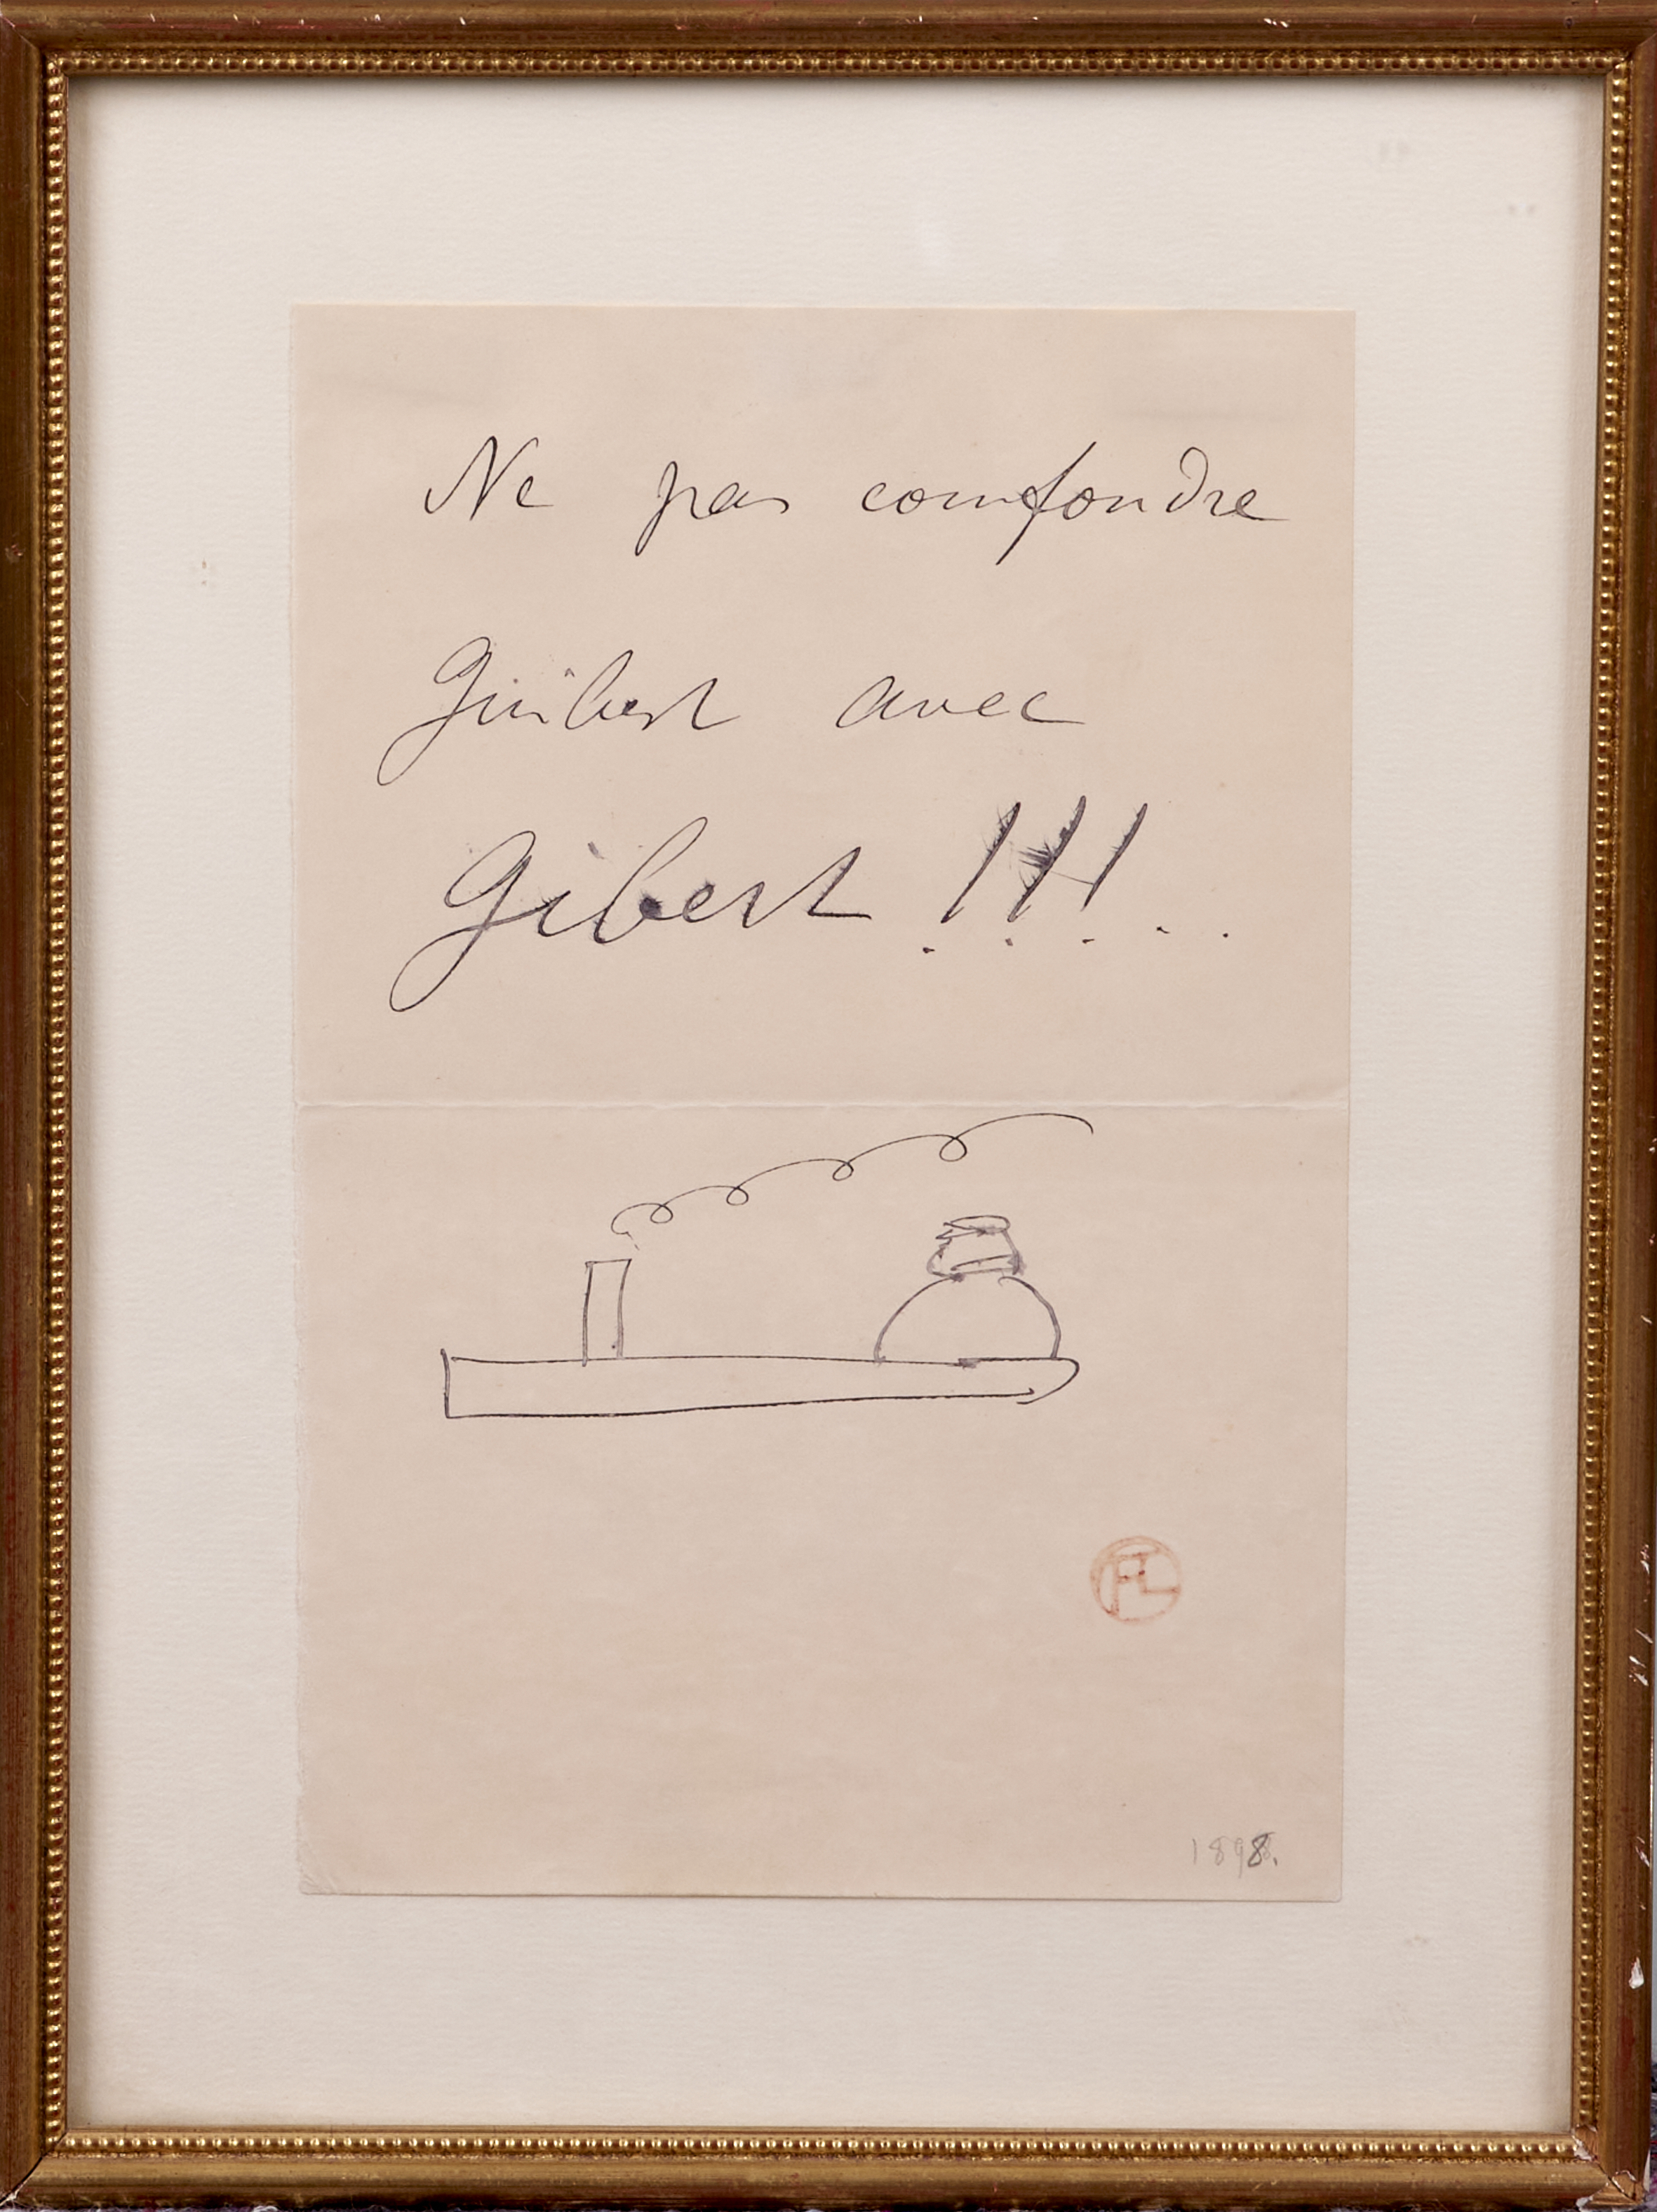 Ne pas confondre
Guibert avec
Gibert !!! . .
1898.